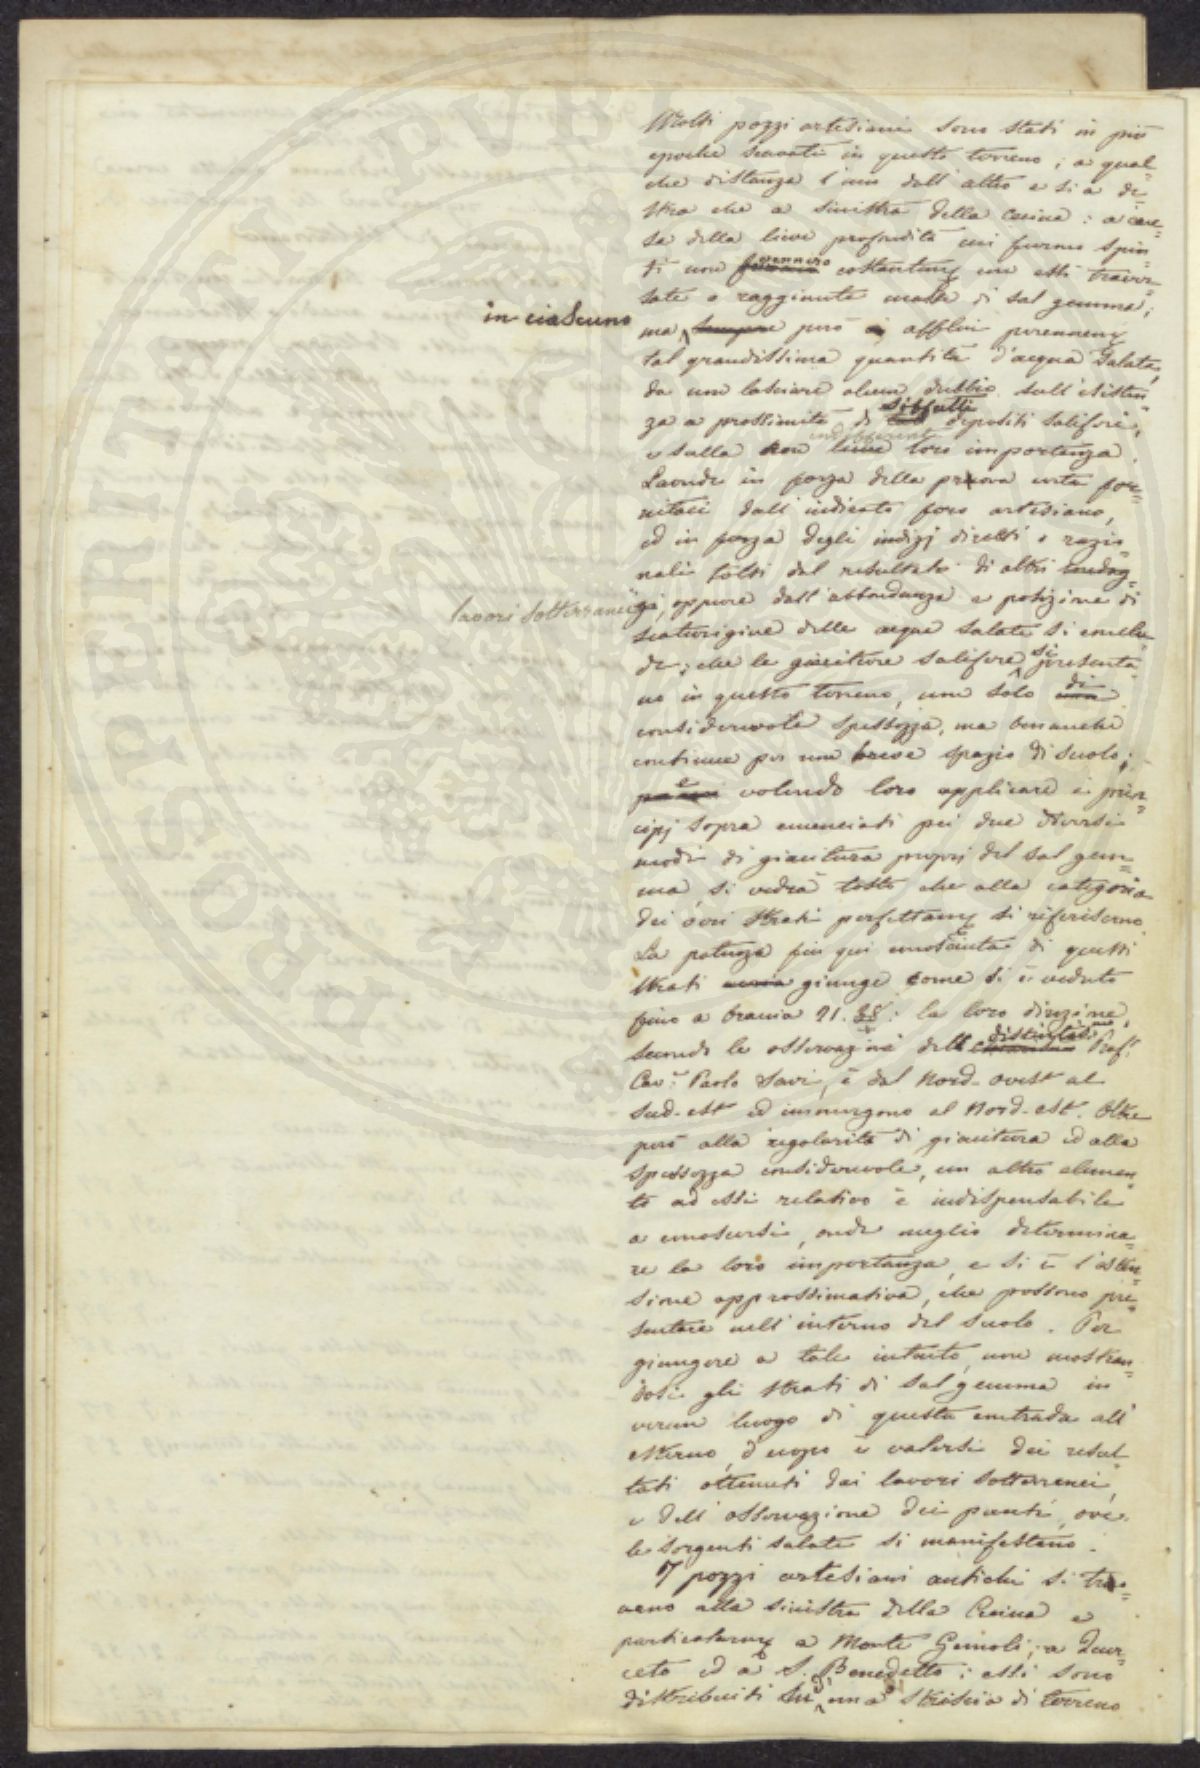 Molti pozzi artesiani sono stati in più
epoche scavati in questo terreno; a qual=
che distanza l'uno dall'altro e sì a de=
stra che a sinistra della Cecina: a cau=
sa della lieve profondità cui furono spin=
ti non vennero costantem̃ con essi traver=
sate o raggiunte masse di sal gemma;
in ciascuno
ma sempre però affluì perennem̃
tal grandissima quantità d'acqua salata,
da non lasciare alcun dubbio sull'esisten=
siffatti
za a prossimità di depositi saliferi,
indifferente
e sulla non lieve loro importanza.
Laonde in forza della pruova certa for=
nitaci dall'indicato foro artesiano,
ed in forza degli indizj diretti e razio=
nali tolti dal resultato di altri indag=
lavori sotterranei
gi, oppure dall'abbondanza e posizione di
scaturigine delle acque salate si conclu=
de; che le giaciture salifere si presenta=
no in questo terreno, non solo di
considerevole spessezza, ma benanche
continue per non breve spazio di suolo;
e volendo loro applicare i prin=
cipj sopra enunciati pei due diversi
modi di giacitura proprj del sal gem=
ma, si vedrà tosto che alla categoria
dei veri strati perfettam̃ si riferiscono.
La potenza fin qui conosciuta di questi
strati giunge come si è veduto
fino a braccia 21.38: la loro direzione,
secondo le osservazioni dell distintissimo Prof.r
Cav.r Paolo Savi, è dal Nord-ovest al
sud-est ed immergono al Nord-est. Oltre
però alla regolarità di giacitura ed alla
spessezza considerevole, un altro elemen=
to ad essi relativo è indispensabile
a conoscersi, onde meglio determina=
re la loro importanza, e si è l'esten=
sione approssimativa, che possono pre=
sentare nell'interno del suolo. Per
giungere a tale intento, non mostran=
dosi gli strati di sal gemma in
verun luogo di questa contrada all'
esterno, d'uopo è valersi dei resul=
tati ottenuti dai lavori sotterranei,
e dell'osservazione dei punti, ove
le sorgenti salate si manifestano.
I pozzi artesiani antichi si tro=
vano alla sinistra della Cecina e
particolarm̃ a Monte Gemoli, a Quer=
ceto ed a S. Benedetto; essi sono
distribuiti su una striscia di terreno